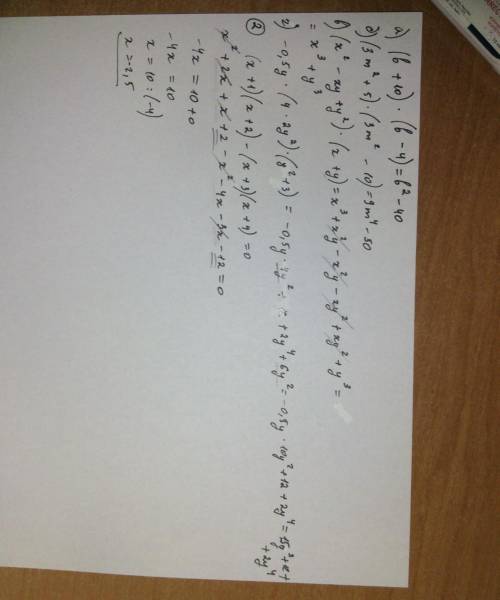 а) (b + 10) · (b - 4) = b² - 40
б) (3m² + 5) · (3m² - 10) = 9m⁴ - 50
в) (x² - xy + y²) · (x + y) = x³ + xy² - xy² - xy² + xy² + y³ =
= x³ + y³
г) -0,5y · (4 · 2y²) · (y² + 3) = -0,5y · 4y² + 2y⁴ + 6y² = -0,5y · 10y² + 12 + 2y⁴ = 5y³ + 12 +
+ 2y⁴
② (x + 1)(x + 2) - (x + 3)(x + 4) = 0
x² + 2x + x + 2 - x² - 4x - 3x - 12 = 0
-4x = 10 + 0
-4x = 10
x = 10 : (-4)
x = -2,5